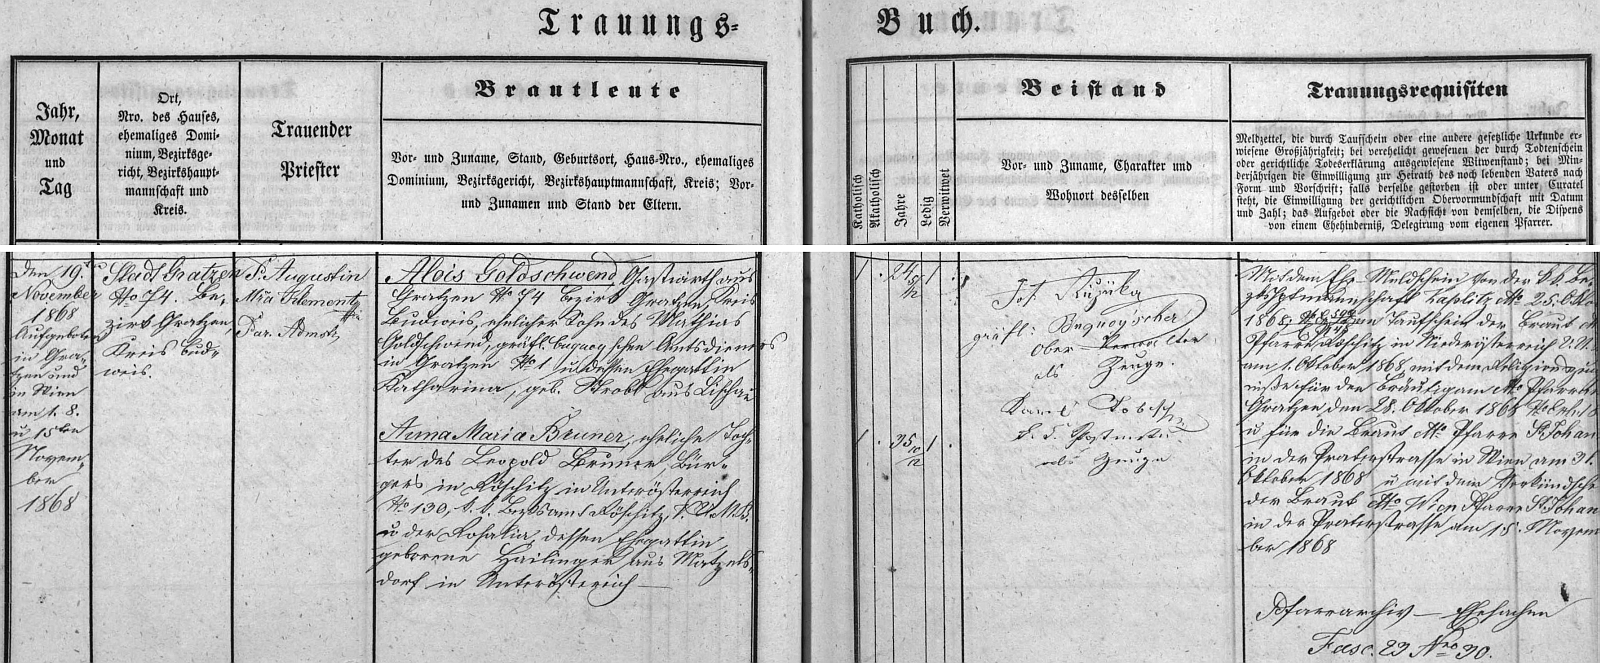 Trauungs=
Buch.
Jahr,
Monat
und
Tag
Ort,
Nro. des Hauses,
ehemaliges Domi-
nium, Bezirksge-
richt, Bezirkshaupt-
mannschaft und
Kreis.
Trauender
Priester
Brautleute
Vor- und Zuname, Stand, Geburtsort, Haus-Nro., ehemaliges
Dominium, Bezirksgericht, Bezirkshauptmannschaft, Kreis; Vor-
und Zunamen und Stand der Eltern.
Katholisch
Akatholisch
Jahre
Ledig
Verwitwet
Beistand
Vor- und Zuname, Charakter und
Wohnort desselben
Trauungsrequisiten
Meldzettel, die durch Taufschein oder eine andere gesetzliche Urkunde er-
wiesene Großjährigkeit; bei verehelicht gewesenen der durch Todtenschein
oder gerichtliche Todeserklärung ausgewiesene Witwenstand; bei Min-
derjährigen die Einwilligung zur Heirath des noch lebenden Vaters nach
Form und Vorschrift; falls derselbe gestorben ist oder unter Curatel
steht, die Einwilligung der gerichtlichen Obervormundschaft mit Datum
und Zahl; das Aufgebot oder die Nachsicht von demselben, die Dispens
von einem Ehehinderniß, Delegirung vom eigenen Pfarrer.
Den 19.
November
1868
Aufgeboten
in Gra-
tzen und
in Wien
am 1. 8.
u 15ten
Novem-
ber
1868
Stadt Gratzen
No 74. Be-
zirk Gratzen,
Kreis Bud-
weis.
P. Augustin
Mra Klement
Par. Admstr
Alois Goldschwend, Gastwirth aus
Gratzen No 74 Bezirk Gratzen Kreis
Budweis, ehelicher Sohn des Mathias
Goldschwend, gräfl. Buquoyschen Amtsdieners
in Gratzen No 1 u dessen Ehegattin
Katharina, geb. Strobl aus
Anna Maria Bruner, eheliche Toch-
ter des Leopold Bruner, Bür-
gers in Röschitz in Unterösterreich
No 130, k. k. Bezksamt Röschitz, V. U. M. B.
u der Rosalia, dessen Ehegattin
geborene Hailinger aus Matzels-
dorf in Unterösterreich
1
24
1
1
35
1
Jos. Ružička
gräfl. Buquoy'scher
Ober-Verwalter
als Zeuge.
Karl
k. k. Postmstr
als Zeuge
Mit dem Ehe-Meldschein von der k k. Be-
Kaplitz No 25. Okt
1868, Taufschein der Braut
Pfarre Röschitz in Niederösterreich
am 1. Oktober 1868, mit dem Religionszeug-
niße für den Bräutigam Pfarre
Gratzen den 28. Oktober 1868
u für die Braut Pfarre St Johan
in der Praterstrasse in Wien am 31.
Oktober 1868 u mit dem Verkündschein
der Braut Wien Pfarre St Johan
in der Praterstrasse am 15. Novem
ber 1868
Pfarrarchiv — Ehesachen
Fasc. 29 Nro 30.